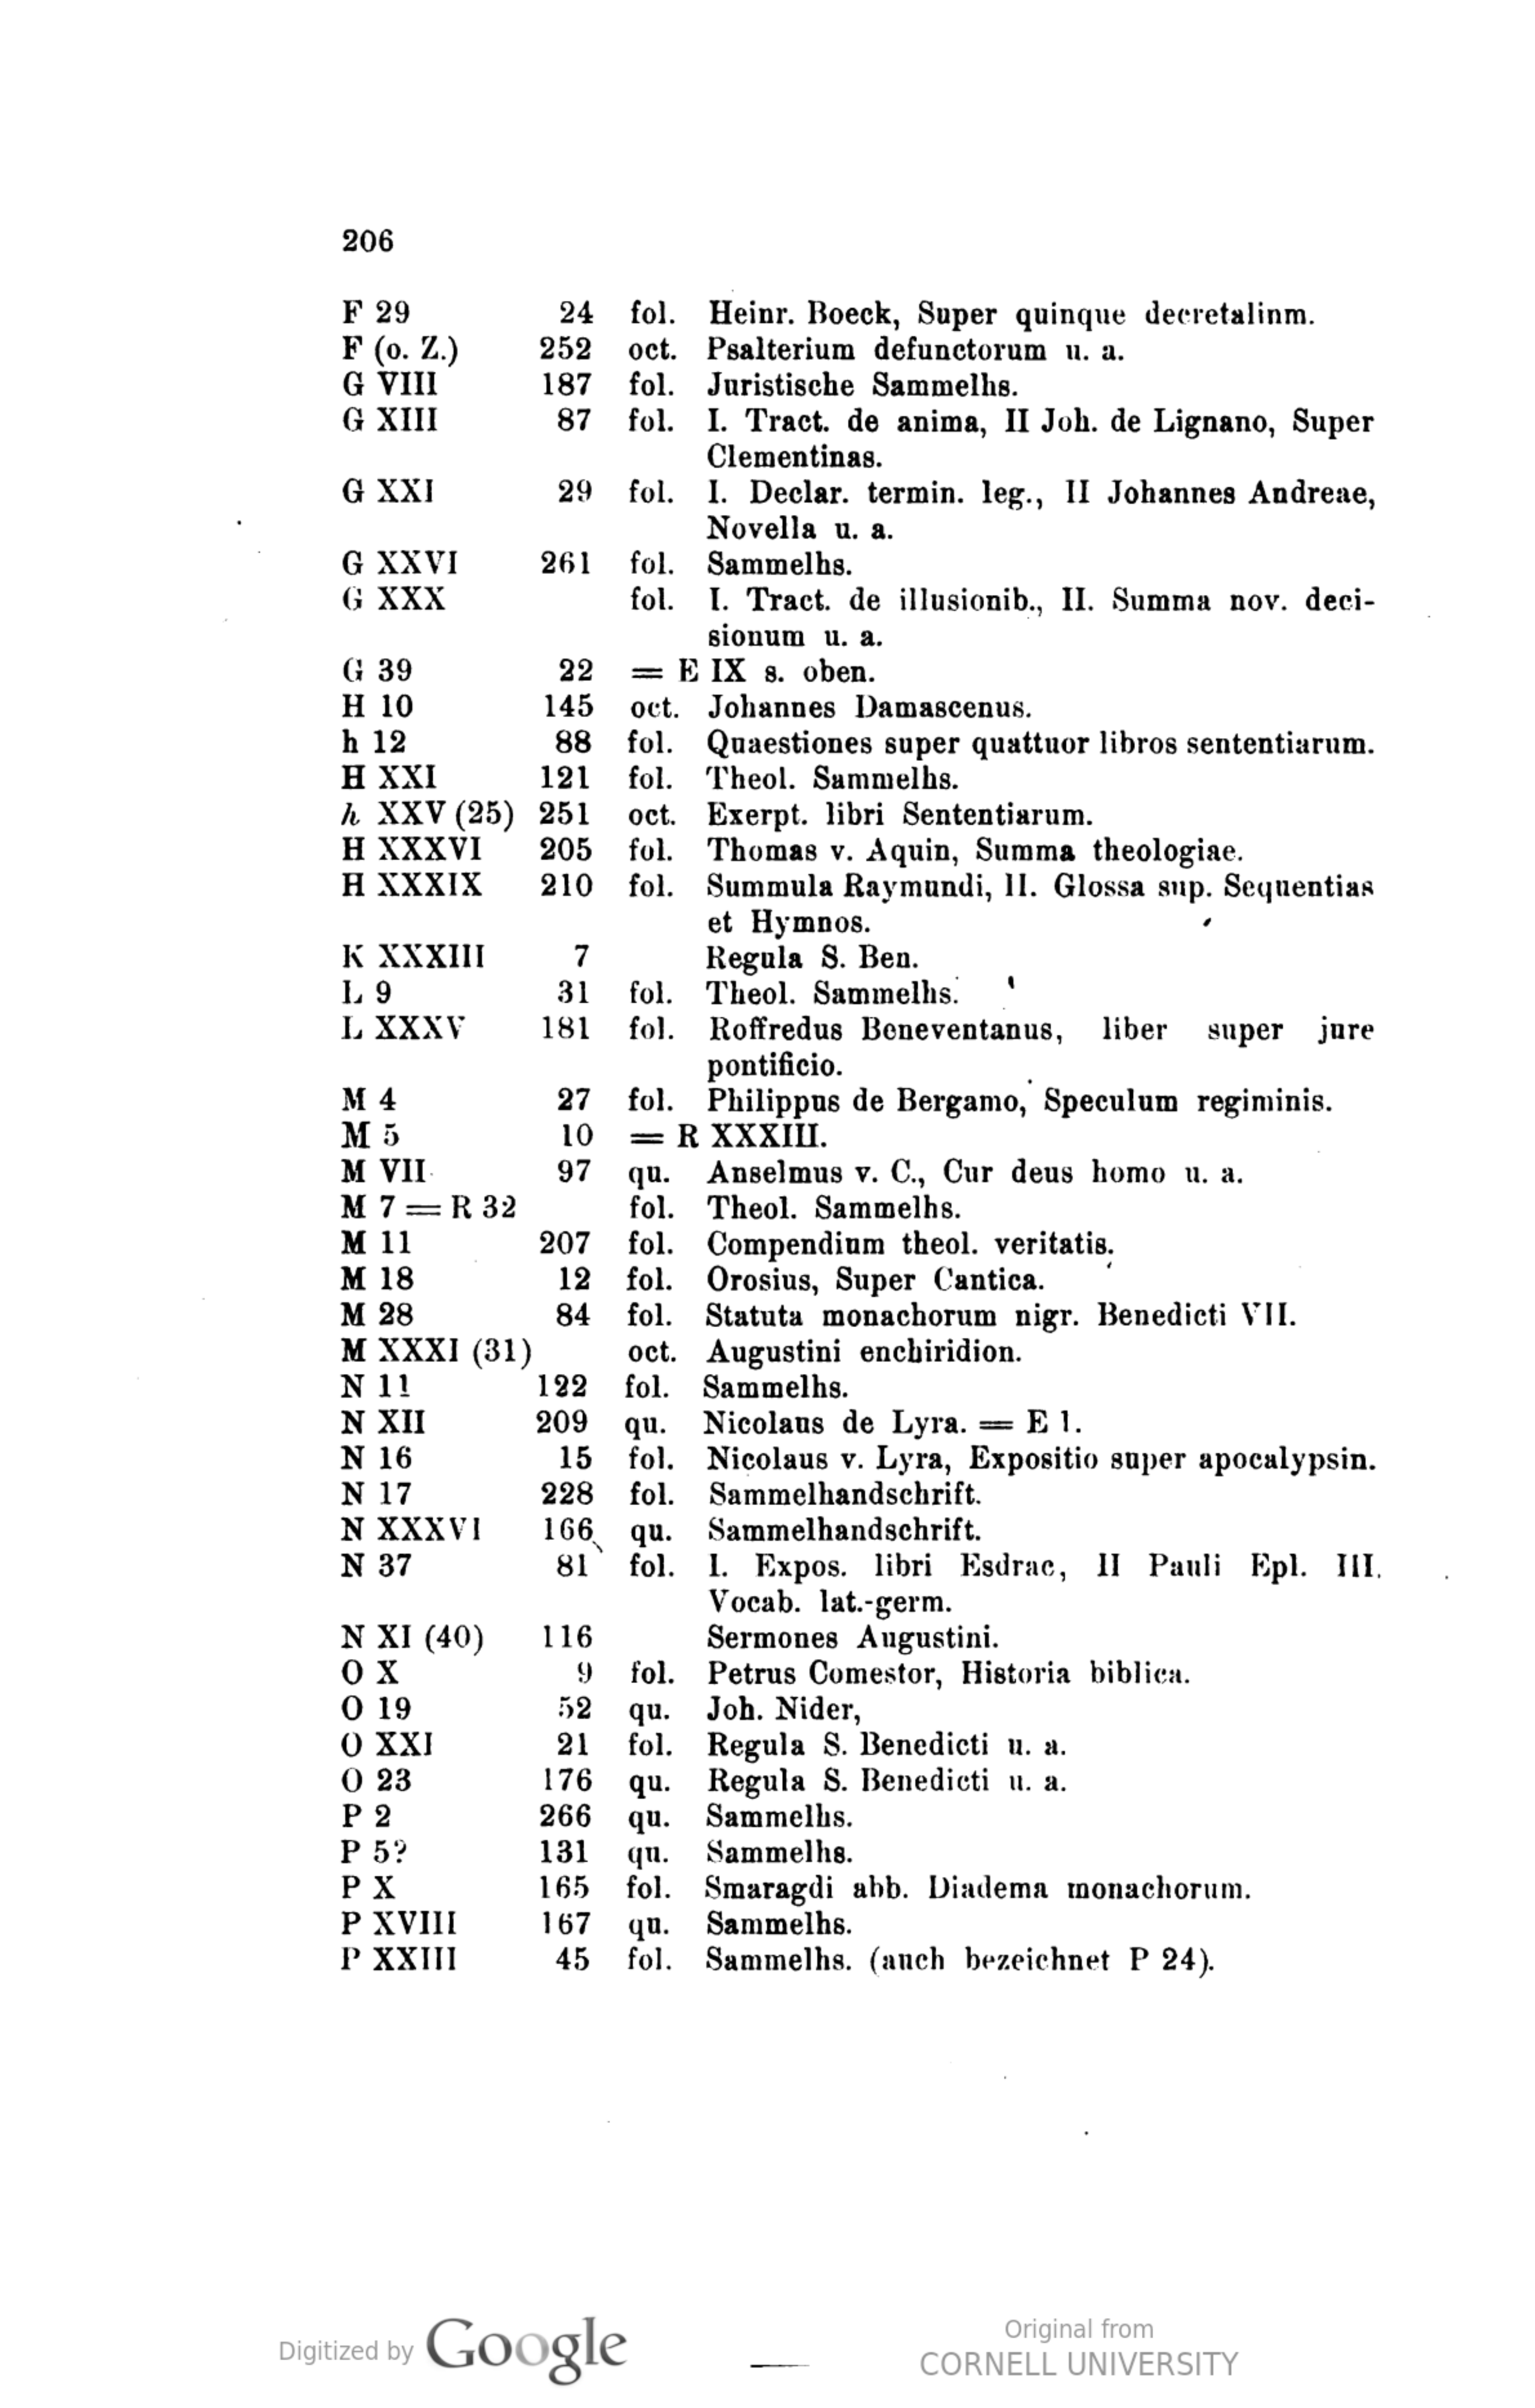 206
F 29 24 fol. Heinr. Boeck, Super quinque decretalinm.
F (o. Z.) 252 oct. Psalterium defunctorum u. a.
G VIII 187 fol. Juristische Sammelhs.
G XIII 87 fol. I. Tract. de anima, II Joh. de Lignano, Super
Clementinas.
G XXI 29 fol. I. Declar. termin. leg., II Johannes Andreae,
Novella u. a.
G XXVI 261 fol. Sammelhs.
G XXX fol. I. Tract. de illusionib., II. Summa nov. deci-
sionum u. a.
G 39 22 = E IX s. oben.
H 10 145 oct. Johannes Damascenus.
h 12 88 fol. Quaestiones super quattuor libros sententiarum.
H XXI 121 fol. Theol. Sammelhs.
h XXV (25) 251 oct. Exerpt. libri Sententiarum.
H XXXVI 205 fol. Thomas v. Aquin, Summa theologiae.
H XXXIX 210 fol. Summula Raymundi, II. Glossa sup. Sequentias
et Hymnos.
K XXXIII 7 Regula S. Ben.
L 9 31 fol. Theol. Sammelhs.
L XXXV 181 fol. Roffredus Beneventanus, liber super jure
pontificio.
M 4 27 fol. Philippus de Bergamo, Speculum regiminis.
M 5 10 = R XXXIII.
M VII 97 qu. Anselmus v. C., Cur deus homo u. a.
M 7 = R 32 fol. Theol. Sammelhs.
M 11 207 fol. Compendium theol. veritatis.
M 18 12 fol. Orosius, Super Cantica.
M 28 84 fol. Statuta monachorum nigr. Benedicti VII.
M XXXI (31) oct. Augustini enchiridion.
N 11 122 fol. Sammelhs.
N XII 209 qu. Nicolaus de Lyra. = E 1.
N 16 15 fol. Nicolaus v. Lyra, Expositio super apocalypsin.
N 17 228 fol. Sammelhandschrift.
N XXXVI 166 qu. Sammelhandschrift.
N 37 81 fol. I. Expos. libri Esdrae, II Pauli Epl. III.
Vocab. lat.-germ.
N XI (40) 116 Sermones Augustini.
O X 9 fol. Petrus Comestor, Historia biblica.
O 19 52 qu. Joh. Nider,
O XXI 21 fol. Regula S. Benedicti u. a.
O 23 176 qu. Regula S. Benedicti u. a.
P 2 266 qu. Sammelhs.
P 5? 131 qu. Sammelhs.
P X 165 fol. Smaragdi abb. Diadema monachorum.
P XVIII 167 qu. Sammelhs.
P XXIII 45 fol. Sammelhs. (auch bezeichnet P 24).
Digitized by Google
Original from
CORNELL UNIVERSITY